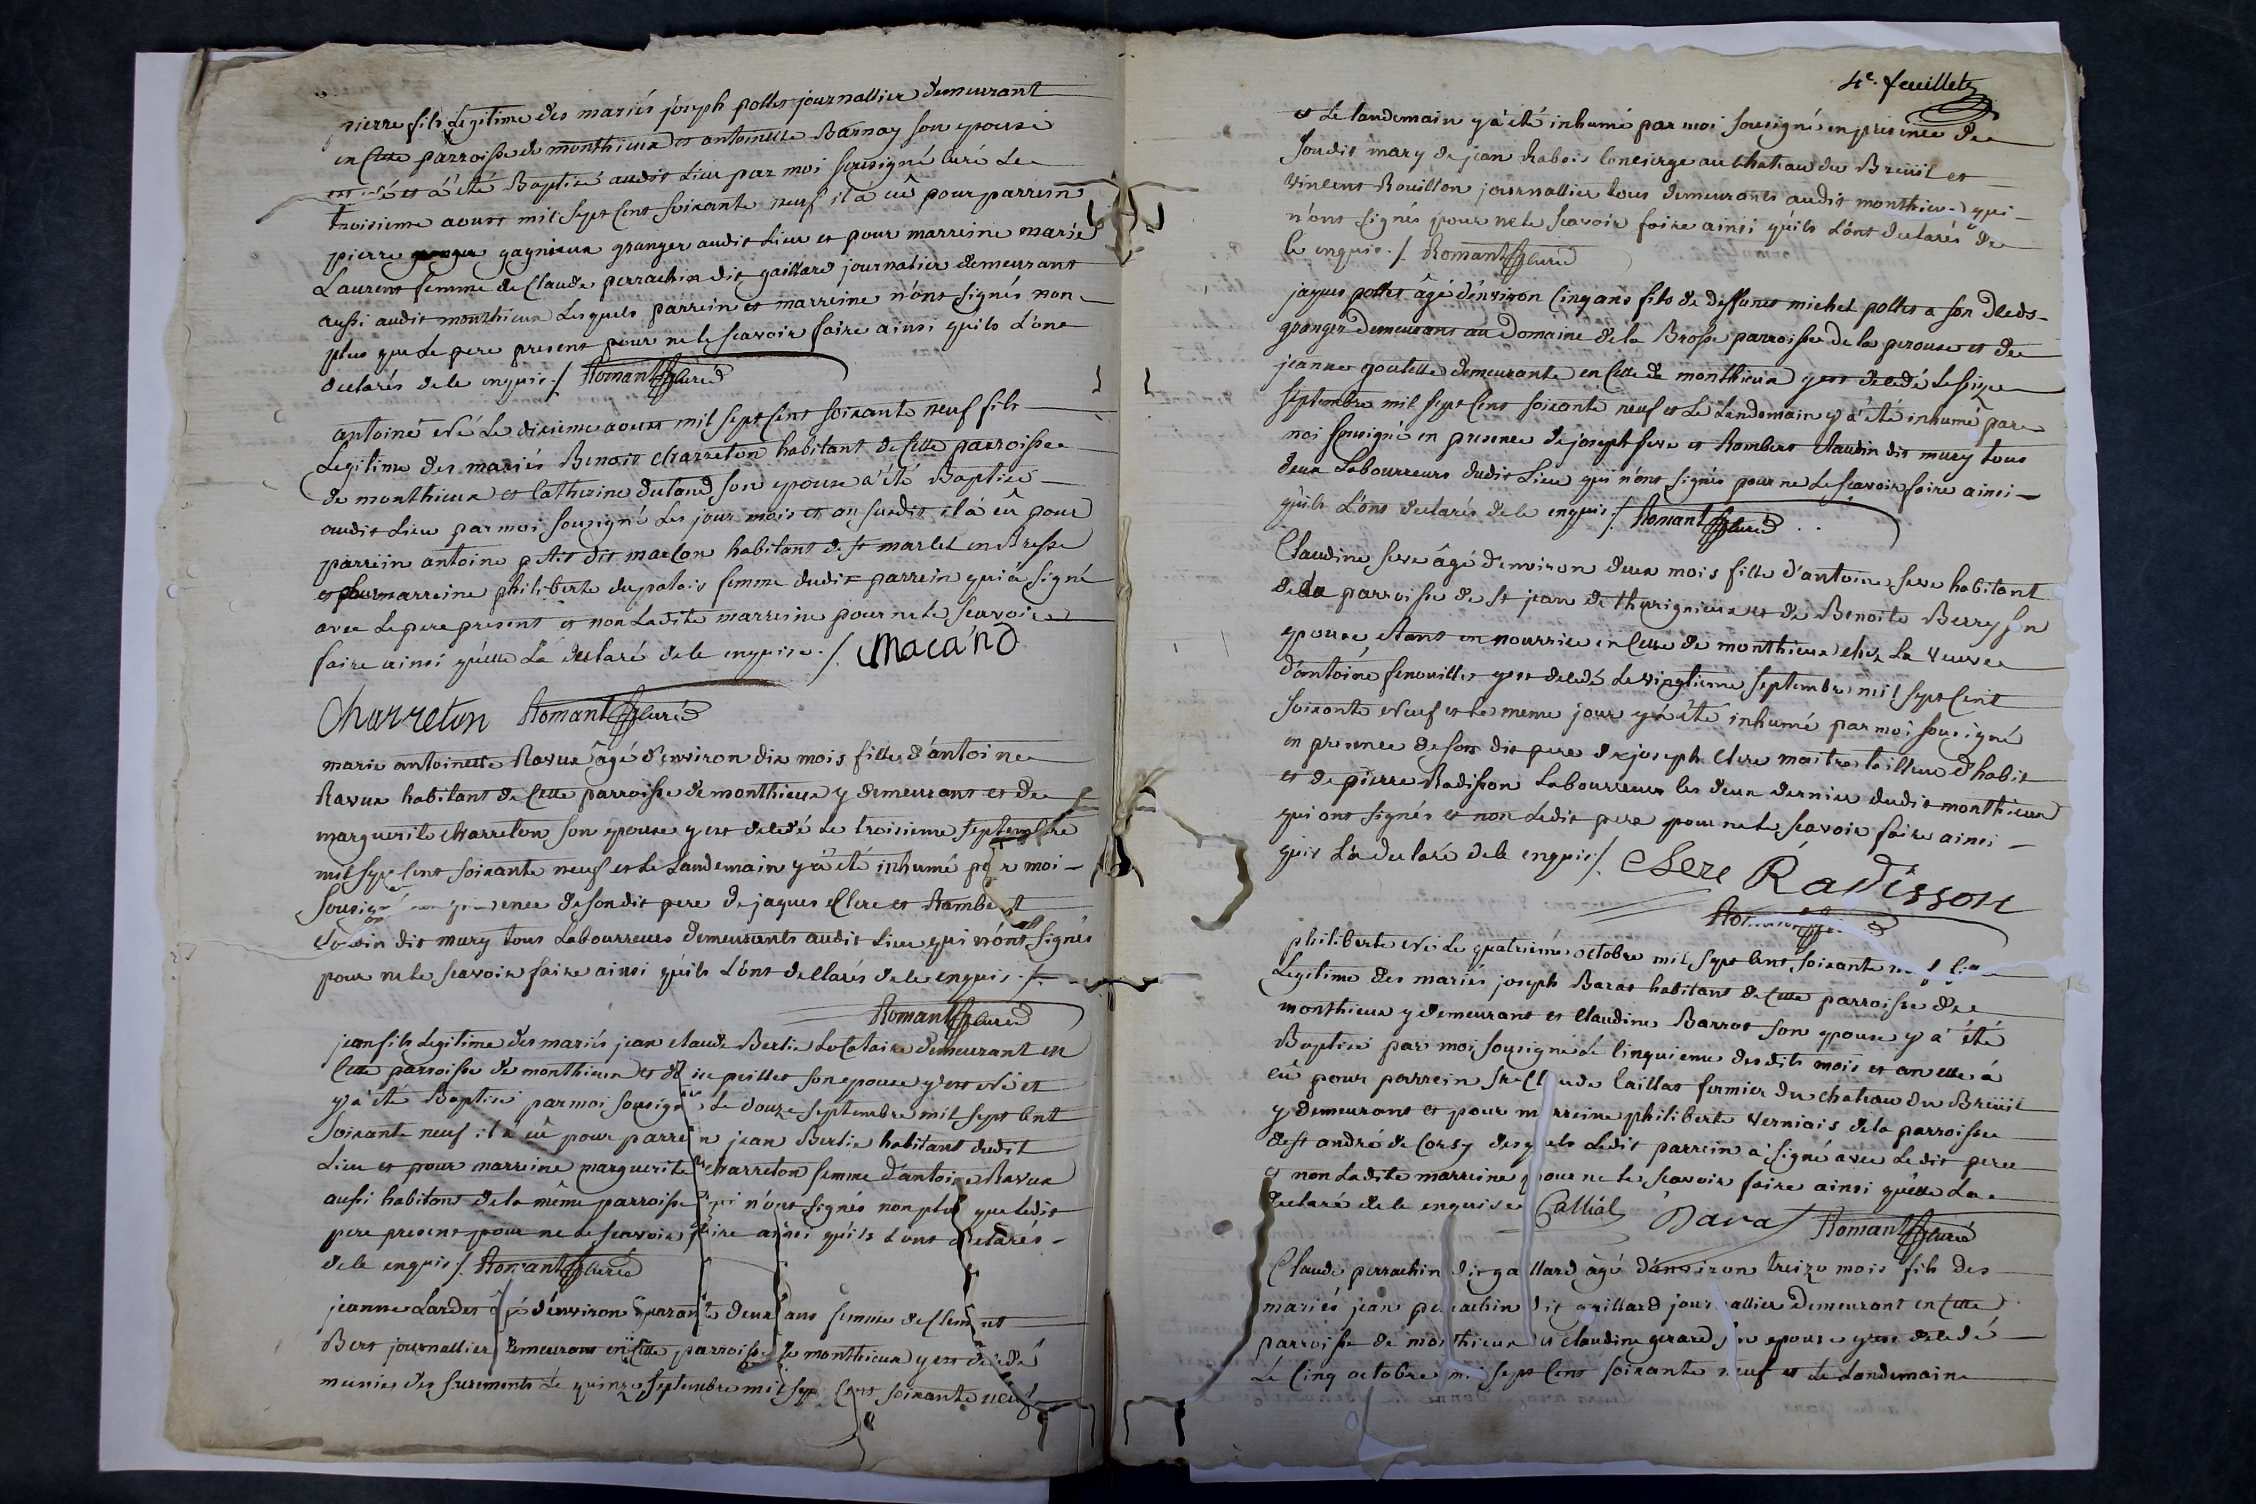 pierre fils Legitime des mariés joseph pollet journallier demeurant
en Cette parroisse de monthieux et antoinette Barnay son epouse
est né et á été Baptisé audit Lieu par moi sousigné curé Le
troisieme aoust mil sept Cent soixante neuf il a eû pour parrein
pierre gagnieux granger audit Lieu et pour marreine marie
Laurent femme de Claude perrachin dit gaillard journalier demeurant
aussi audit monthieux Lesquels parrein et marreine n'ont signés non
plus que Le pere present pour ne le scavoir faire ainsi quils L'ont
declarés de le enquis ./. Romant curé
antoine Né Le dixieme aoust mil sept Cent soixante neuf fils
Legitime des mariés Benoit Charreton habitant de Cette parroisse
de monthieux et Catherine duland son epouse a été Baptisé
audit Lieu par moi sousigné Les jour mois et an susdit il á eû pour
parrein antoine petit dit macon habitant de st marcel en Bresse
et pour marreine philiberte dupalais femme dudit parrein qui á signé
avec Le pere present et non Ladite marreine pour ne le scavoir
faire ainsi quelle La declaré de le enquise ./. Macand
Charreton Romant curé
marie antoinette Ravux âgé d'environ dix mois fille d'antoine
Ravux habitant de Cette parroisse de monthieux y demeurant et de
marguerite Charreton son epouse y est decedé Le troisieme septembre
mil sept Cent soixante neuf et le Landemain y á été inhumé par moi
sousigné en presence de son dit pere de jaques Clere et Rambert
Claudin dit mury tous Labourreurs demeurants audit Lieu qui n'ont signés
pour ne le scavoir faire ainsi quils L'ont dellarés de le enquis ./.
Romant curé
jean fils Legitime des mariés jean claude Berlie Locataire demeurant en
Cette parroisse de monthieux et de peillet son epouse y est Né et
y á été Baptisé par moi sousigné Le douze septembre mil sept Cent
soixante neuf il á eû pour parrein jean Berlie habitant dudit
Lieu et pour marreine marguerite Charreton femme d'antoine Ravux
aussi habitant de la même parroisse qui n'ont signés non plus que ledit
pere present pour ne Le scavoir faire ainsi quils L'ont declarés
de le enquis ./. Romant curé
jeanne Lardet âgé d'environ quarante deux ans femme de Clement
Bert journallier demeurant en Cette parroisse de monthieux y est decedé
munie des sacrements Le quinze septembre mil sept Cent soixante neuf
4e. feuillet
et Le landemain y á été inhumé par moi sousigné en presence de
sondit mary de jean Rabois Concierge au Chateau du Breüil et
Vincent Bouillon journallier tous demeurants audit monthieux qui
n'ont signés pour ne le scavoir faire ainsi quils L'ont declarés de
le enquis ./. Romant curé
jaques pollet âgé d'environ Cinq ans fils de deffunct michel pollet a son deceds
granger demeurant au Domaine de la Brosse parroisse de la perouse et de
jeanne goutelle demeurante en Cette de monthieux y est decedé Le seize
septembre mil sept Cent soixante neuf et Le Landemain y á été inhumé par
moi sousigné en presence de joseph seve et Rambert Claudin dit mury tous
deux Labourreurs dudit Lieu qui n'ont signés pour ne Le scavoir faire ainsi
quils L'ont declarés de le enquis ./. Romant curé
Claudine seve âgé d'environ deux mois fille d'antoine seve habitant
de la parroisse de st jean de thurignieux et de Benoite Berry son
epouse etant en nourrice en Cette de monthieux chez La Veuve
d'antoine fenouillet y est decedé Le vingtieme septembre mil sept Cent
soixante Neuf et Le meme jour y á été inhumé par moi sousigné
en presence de son dit pere de joseph Clere maitre tailleur d'habit
et de pierre Radisson Labourreur les deux dernier dudit monthieux
qui ont signés et non Ledit pere pour ne le scavoir faire ainsi
quil L'a declaré de le enquis ./. Clere Radisson
Romant curé
philiberte Né Le quatrieme octobre mil sept Cent soixante neuf fille
Legitime des mariés joseph Baras habitant de Cette parroisse de
monthieux y demeurant et Claudine Barrot son epouse y a été
Baptisé par moi sousigné Le Cinquieme desdits mois et an elle á
eû pour parrein sr Claude Caillat fermier du chateau du Breüil
y demeurant et pour marreine philiberte verniais de la parroisse
de st andré de Corsy desquels Ledit parrein á signé avec Ledit pere
et non Ladite marreine pour ne le scavoir faire ainsi quelle La
declaré de le enquise Calliat Baras Romant curé
Claude perrachin dit gaillard âgé d'environ treize mois fils des
mariés jean perrachin dit gaillard journallier demeurant en Cette
parroisse de monthieux et claudine gerard son epouse y est decedé
Le Cinq octobre mil sept Cent soixante neuf et Le Landemain